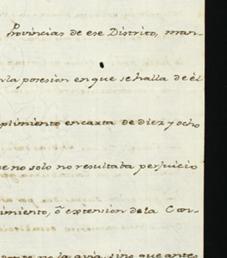 Provincias de ese Distrito, man-
la posesion en que se halla de él
plimiento en carta de diez y ocho
e no solo no resultaba perjuicio
imiento, ô extension de la Con-
no la avia, sino que antes